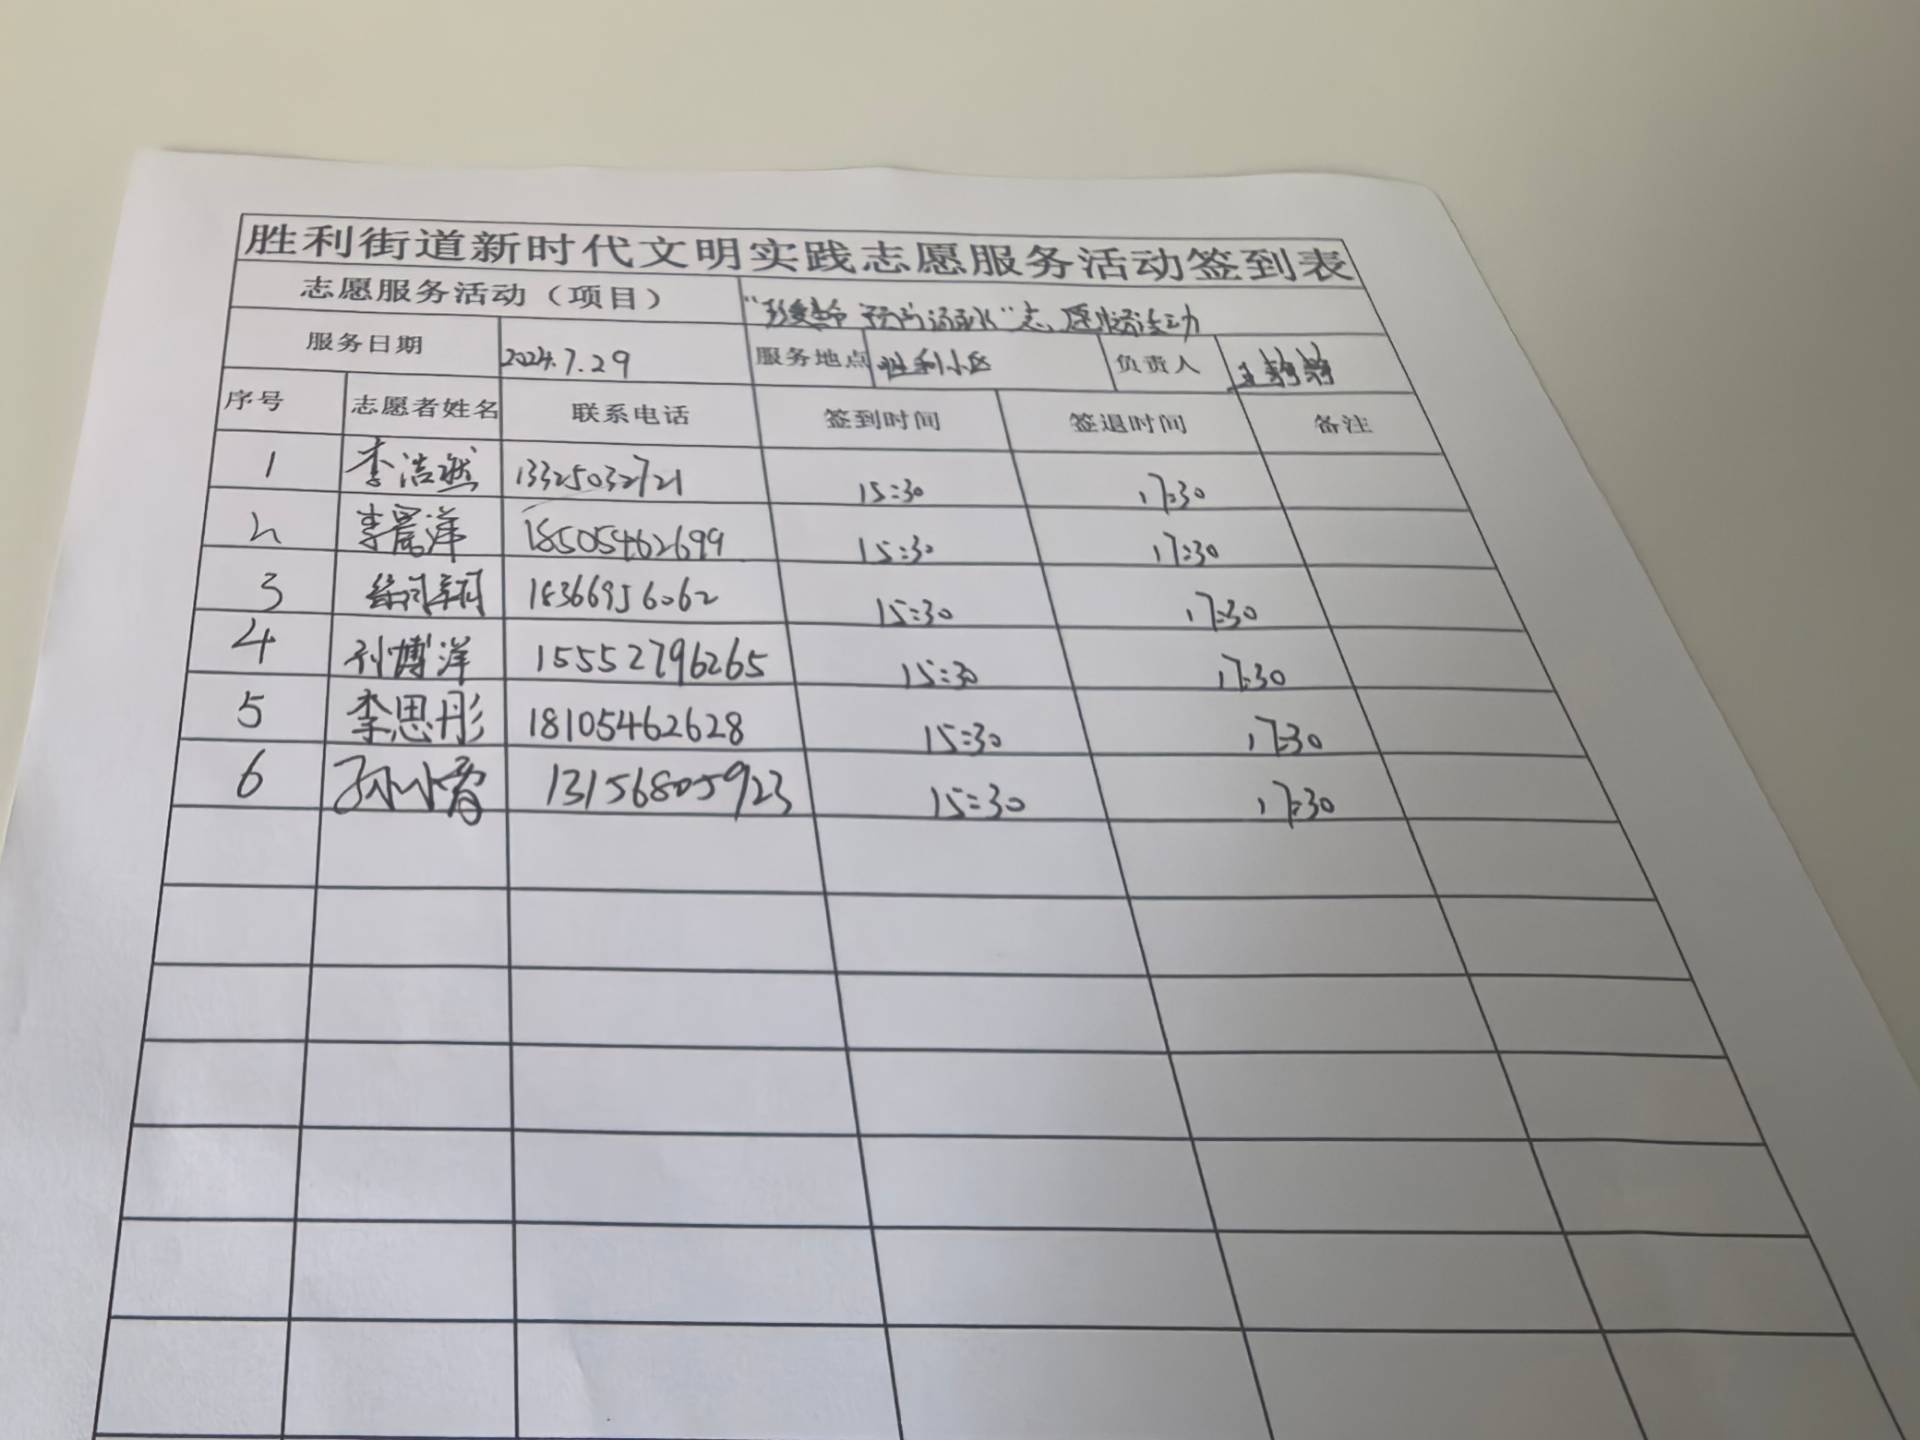 胜利街道新时代文明实践志愿服务活动签到表
志愿服务活动（项目） "珍爱生命 预防溺水"志愿服务活动
服务日期 2024.7.29 服务地点 胜利小区 负责人 王
序号 志愿者姓名 联系电话 签到时间 签退时间 备注
1 李浩然 13325032721 15:30 17:30
2 李晨洋 18505462699 15:30 17:30
3 18366956062 15:30 17:30
4 刘博洋 15552796265 15:30 17:30
5 李思彤 18105462628 15:30 17:30
6 孙小 13156805923 15:30 17:30